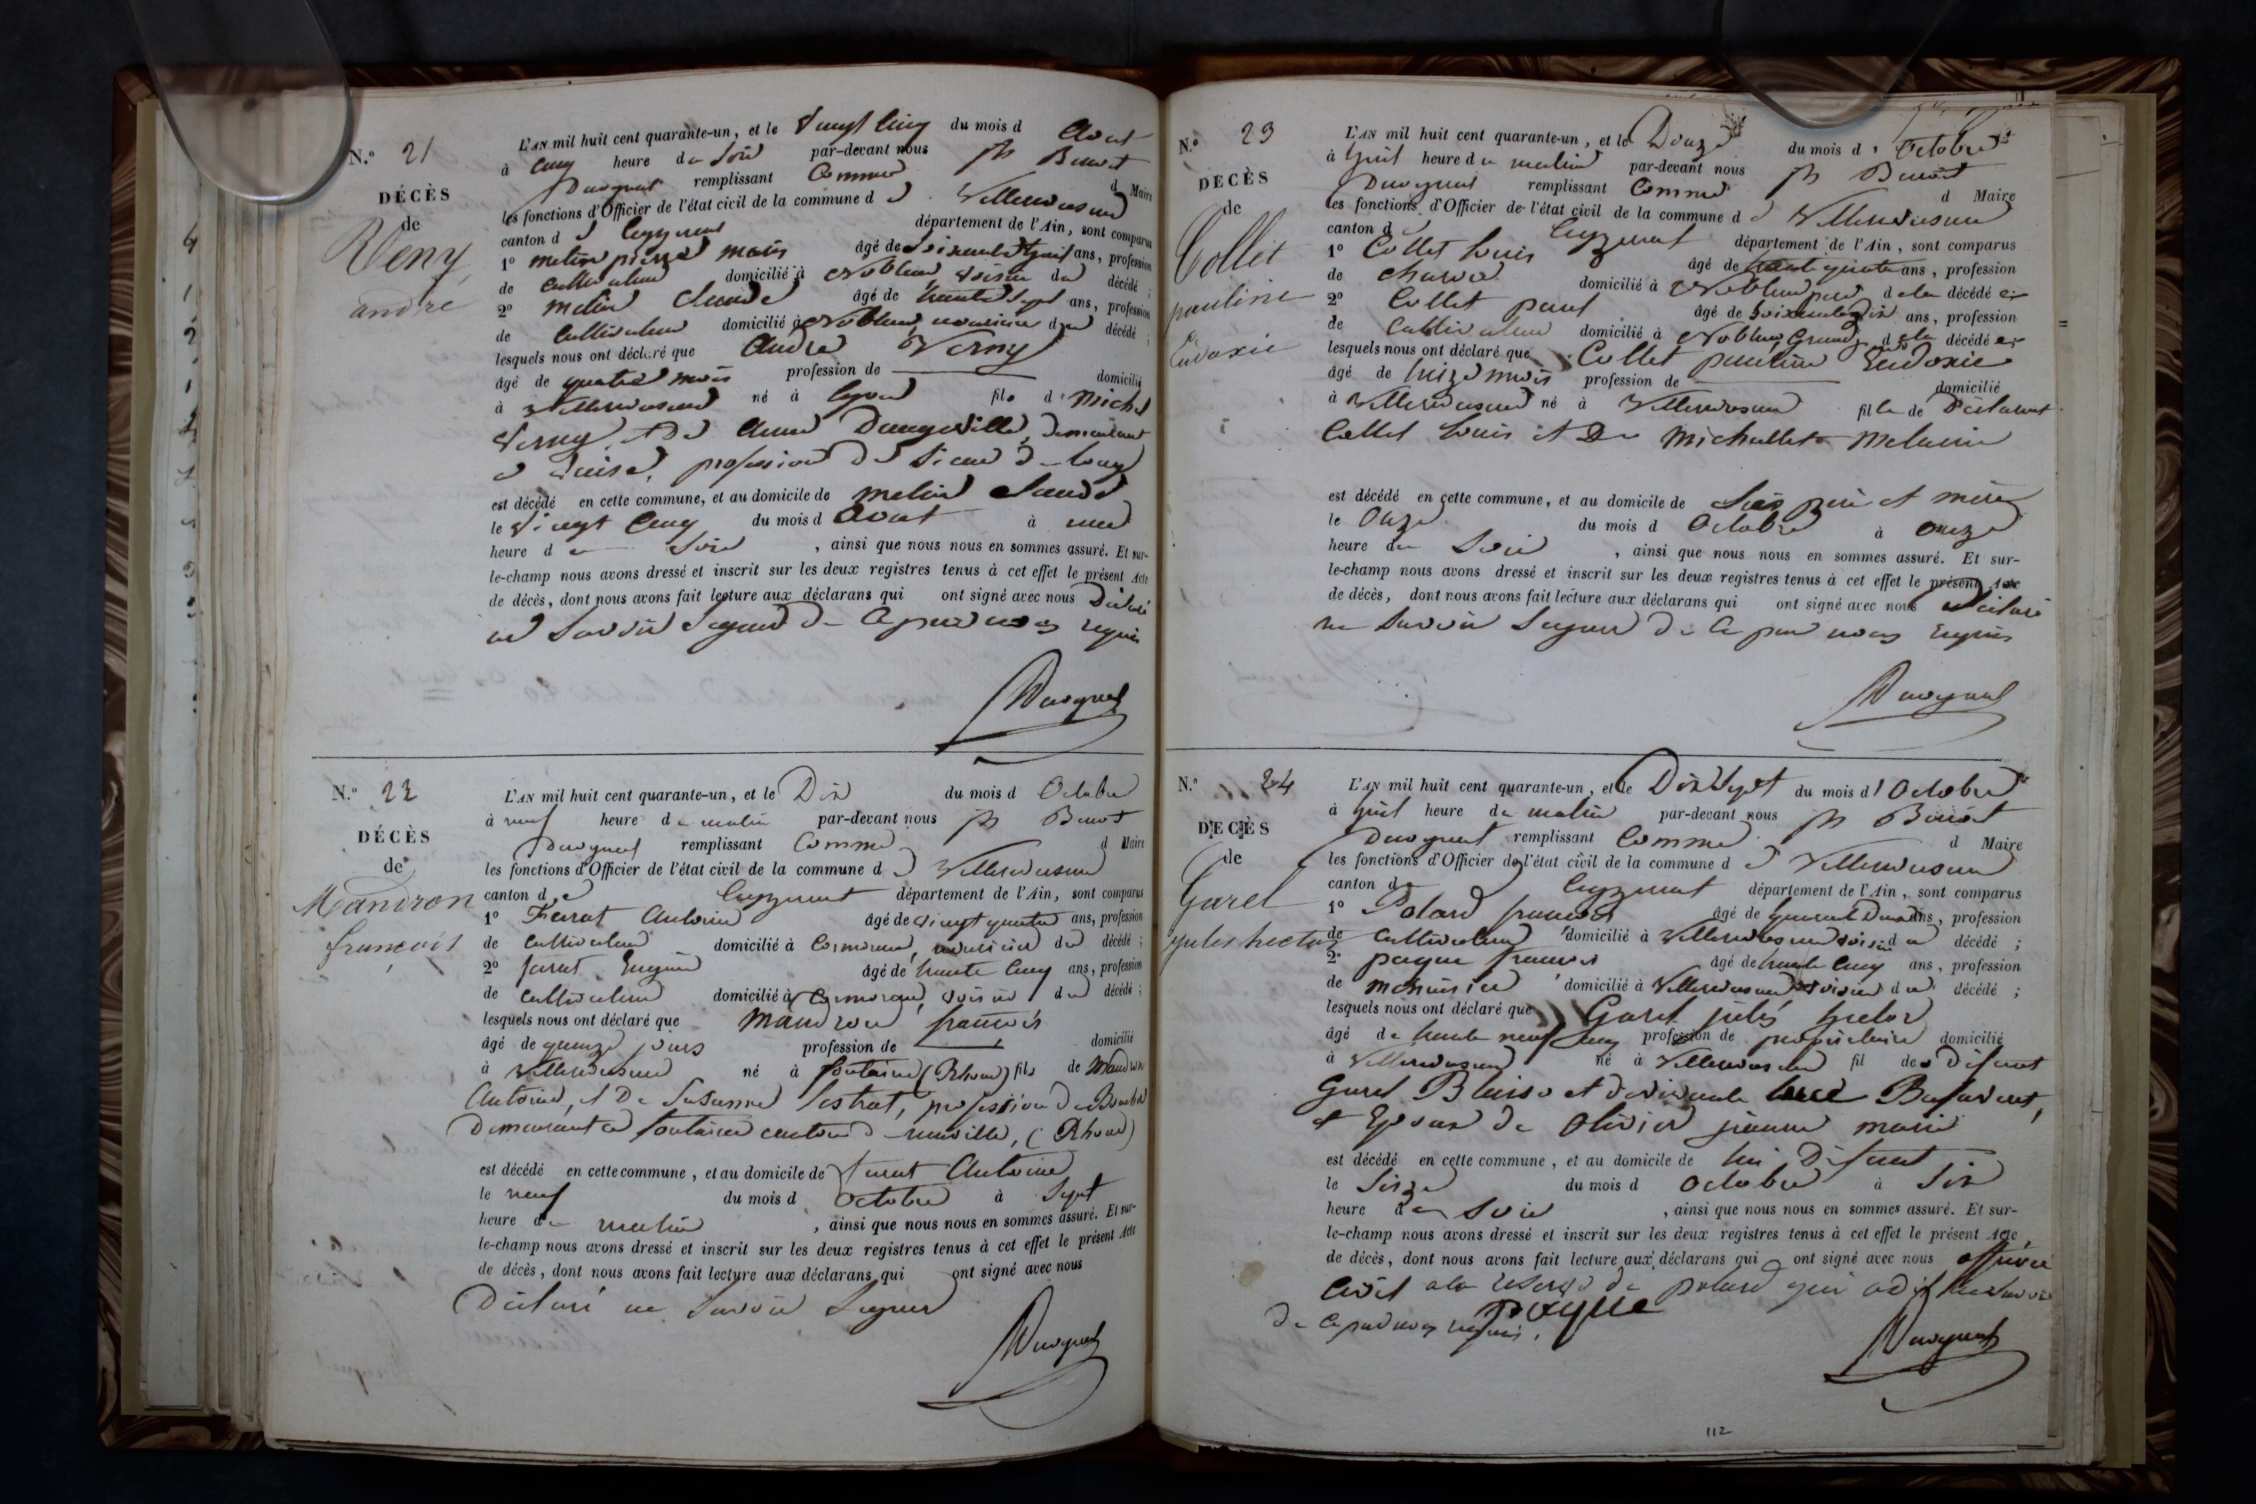 N.º 21
DÉCÈS
de
Veny
andré
L'AN mil huit cent quarante-un, et le Vingt Cinq du mois d Aout
à Cinq heure du Soir par-devant nous Benoit
Duvquet remplissant Comme d Maire
les fonctions d'Officier de l'état civil de la commune d Villereversure
canton d Ceyzeriat département de l'Ain, sont comparus
1º melin pierre marie âgé de Soixante huit ans, profession
de Cultivateur domicilié à Noblens, voisin du décédé ;
2º melin Claude âgé de trente Sept ans, profession
de Cultivateur domicilié à Noblens, nourricier du décédé ;
lesquels nous ont déclaré que André Verny
âgé de quatre mois profession de domicilié
à Villereversure né à Lyon fils d Michel
Verny, et de Anne demeurant
profession de
est décédé en cette commune, et au domicile de melin Claude
le Vingt Cinq du mois d Aout à une
heure d Soir , ainsi que nous nous en sommes assuré. Et sur-
le-champ nous avons dressé et inscrit sur les deux registres tenus à cet effet le présent Acte
de décès, dont nous avons fait lecture aux déclarans qui ont signé avec nous Déclaré
ne Savoir Signer de Ce par nous requis
N.º 22
DÉCÈS
de
Mandron
françois
L'AN mil huit cent quarante-un, et le Dix du mois d Octobre
à neuf heure du matin par-devant nous Benoit
remplissant Comme d Maire
les fonctions d'Officier de l'état civil de la commune d Villereversure
canton de Ceyzeriat département de l'Ain, sont comparus
1º Ferrat Antoine âgé de vingt quatre ans, profession
de Cultivateur domicilié à Cormoran, nourricier du décédé ;
2º ferrat Eugène âgé de trente Cinq ans, profession
de Cultivateur domicilié à Cormoran, voisin du décédé ;
lesquels nous ont déclaré que Mandron françois
âgé de quinze jours profession de domicilié
à Villereversure né à fontaine (Rhone) fils de Mandron
Antoine, et De Susanne profession de
Demeurant à fontaine canton de neuville, (Rhone)
est décédé en cette commune, et au domicile de ferrat Antoine
le neuf du mois d Octobre à Sept
heure du matin , ainsi que nous nous en sommes assuré. Et sur-
le-champ nous avons dressé et inscrit sur les deux registres tenus à cet effet le présent Acte
de décès, dont nous avons fait lecture aux déclarans qui ont signé avec nous
Déclaré ne Savoir Signer
N.º 23
DÉCÈS
de
Collet
pauline
Eudoxie
L'AN mil huit cent quarante-un, et le Douze du mois d Octobre
à huit heure du matin par-devant nous Benoit
remplissant Comme d Maire
les fonctions d'Officier de l'état civil de la commune d Villereversure
canton d Ceyzeriat département de l'Ain, sont comparus
1º Collet Louis âgé de ans, profession
de charron domicilié à Noblens père de la décédé e
2º Collet paul âgé de Soixante dix ans, profession
de Cultivateur domicilié à Noblens Grand père de la décédé e
lesquels nous ont déclaré que Collet pauline Eudoxie
âgé de treize mois profession de domicilié
à Villereversure né à Villereversure fille de Déclarant
Collet Louis et De Michallet Melanie
est décédé en cette commune, et au domicile de Ses père et mère
le Onze du mois d Octobre à Onze
heure du Soir , ainsi que nous nous en sommes assuré. Et sur-
le-champ nous avons dressé et inscrit sur les deux registres tenus à cet effet le présent Acte
de décès, dont nous avons fait lecture aux déclarans qui ont signé avec nous Déclaré
ne Savoir Signer de Ce par nous requis
N.º 24
DÉCÈS
de
Garel
jules hector
L'AN mil huit cent quarante-un, et le Dix Sept du mois d Octobre
à huit heure du matin par-devant nous Benoit
remplissant Comme d Maire
les fonctions d'Officier de l'état civil de la commune d Villereversure
canton de Ceyzeriat département de l'Ain, sont comparus
1º Polard françois âgé de ans, profession
de Cultivateur domicilié à Villereversure voisin du décédé ;
2º paque françois âgé de trente Cinq ans, profession
de menuisier domicilié à Villereversure voisin du décédé ;
lesquels nous ont déclaré que Garel jules hector
âgé de trente neuf ans profession de propriétaire domicilié
à Villereversure né à Villereversure fil de Défunt
Garel Blaise et de vivante
et Epoux de Olivier jeanne marie
est décédé en cette commune, et au domicile de lui Défunt
le Seize du mois d Octobre à Six
heure du Soir , ainsi que nous nous en sommes assuré. Et sur-
le-champ nous avons dressé et inscrit sur les deux registres tenus à cet effet le présent Acte
de décès, dont nous avons fait lecture aux déclarans qui ont signé avec nous officier
Civil a la reserve de polard qui a dit ne Savoir
de Ce par nous requis. paque
112